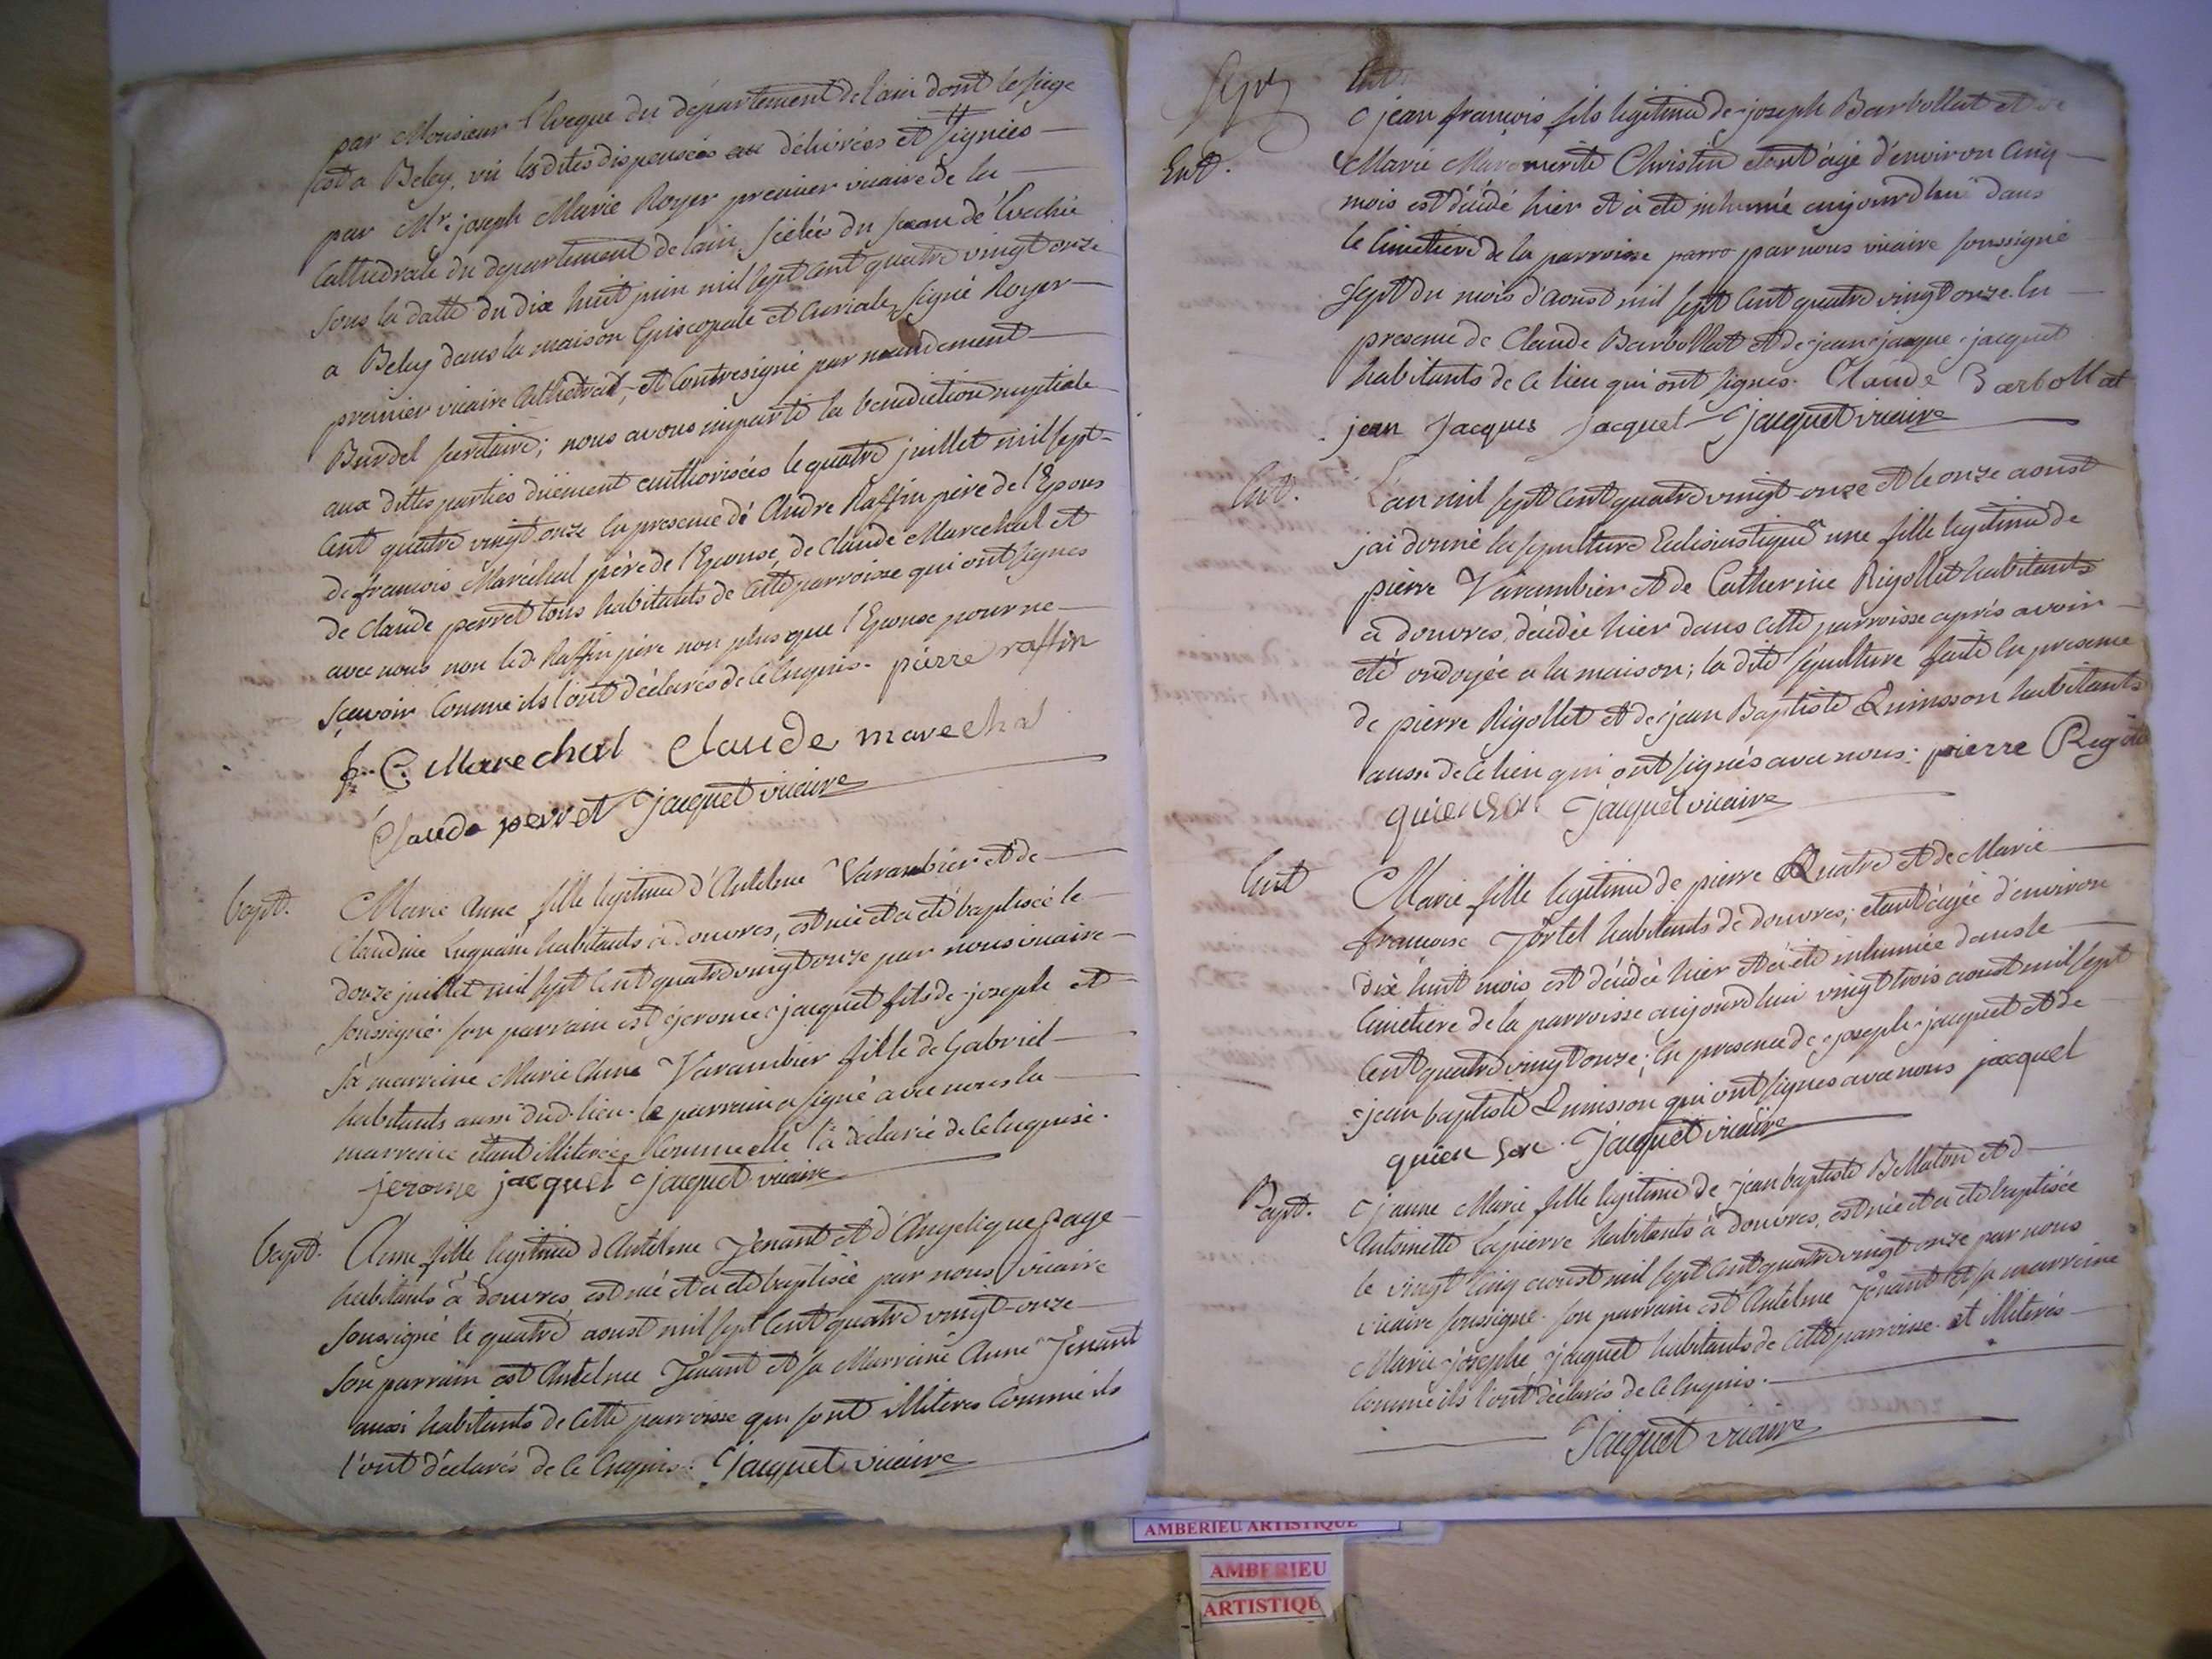 par Monsieur l'Eveque du département de l'ain dont le siege
est a Beley, vû les dites dispenses au délivrées et signées
par Mr. joseph Marie Royer premier vicaire de la
Cathedrale du departement de lain, scélée du sceau de l'Evechié
sous la datte du dix huit juin mil sept cent quatre vingt onze
a Beley dans la maison Episcopale et Curiale, signé Royer
premier vicaire Cathedral, et Contresigné par mandement
Burdel secretaire; nous avons imparti la benediction nuptiale
aux dittes parties duement authorisées le quatre juillet mil sept
Cent quatre vingt onze En presence de Andre Raffin père de l'Epous
de francois Maréchal père de l'Epouse, de Claude Marechal et
de Claude perret tous habitants de Cette parroisse qui ont signes
avec nous non led. Raffin père non plus que l'Epouse pour ne
scavoir Comme ils l'ont déclarés de Ce Enquis. pierre raffin
fr. C. Marechal Claude marechal
Claude perret Jacquet vicaire
bapt. Marie Anne fille legitime d'Antelme Varambier et de
Claudine habitants a douvres, est née et a eté baptisée le
douze juillet mil sept Cent quatre vingt onze par nous vicaire
soussigné. son parrain est jerome jacquet fils de joseph et
sa marreine Marie Anne Varambier fille de Gabriel
habitants aussi dud. lieu. le parrain a signé avec nous la
marreine étant illiterée, Comme elle l'a déclarée de Ce Enquise.
jerome jacquet jacquet vicaire
bapt. Anne fille legitime d'Antelme Jenant et d'Angelique page
habitants a douvres est née et a eté baptisée par nous vicaire
soussigné le quatre aoust mil sept Cent quatre vingt onze
son parrain est Antelme Jenant et sa Marreine Anne Jenant
aussi habitants de Cette parroisse qui sont illiteres Comme ils
l'ont déclarés de Ce Enquis. Jacquet vicaire
Ent.
jean francois fils legitime de joseph Barbollat et de
Ent. Marie Marguerite Christin etant âgé d'environ Cinq
mois est décédé hier et a eté inhumé aujourdhui dans
le Cimetiere de la parroisse parro par nous vicaire soussigné
sept du mois d'aoust mil sept Cent quatre vingt onze. En
presence de Claude Barbollat et de jean jacque jacquet
habitants de Ce lieu qui ont signes. Claude Barbollat
jean Jacques Jacquet Jacquet vicaire
Ent. L'an mil sept Cent quatre vingt onze et le onze aoust
jai donné la sepulture Eclesiastique a une fille legitime de
pierre Varambier et de Catherine Rigollet habitants
a douvres, décédée hier dans Cette parroisse après avoir
eté ondoyée a la maison; la dite sépulture faite En presence
de pierre Rigollet et de jean Baptiste Quinsson habitants
aussi de Ce lieu qui ont signés avec nous: pierre
quienson Jacquet vicaire
Ent Marie fille legitime de pierre Quatre et de Marie
francoise habitants de douvres; etant âgée d'environ
dix huit mois est décédée hier et a eté inhumée dans le
Cimetiere de la parroisse aujourdhui vingt trois aoust mil sept
Cent quatre vingt onze; En presence de joseph jacquet et de
jean baptiste Quinsson qui ont signes avec nous jacquet
quienson. Jacquet vicaire
Bapt. jeanne Marie fille legitime de jean baptiste Bellaton et d
Antoinette Lapierre habitants à douvres, est née et a eté baptisée
le vingt Cinq aoust mil sept Cent quatre vingt onze par nous
vicaire soussigné. son parrain est Antelme Jenant et sa marreine
Marie josephe jacquet habitants de Cette parroisse. et illiterés
Comme ils l'ont déclarés de Ce Enquis.
Jacquet vicaire
AMBERIEU ARTISTIQUE
AMBERIEU
ARTISTIQUE